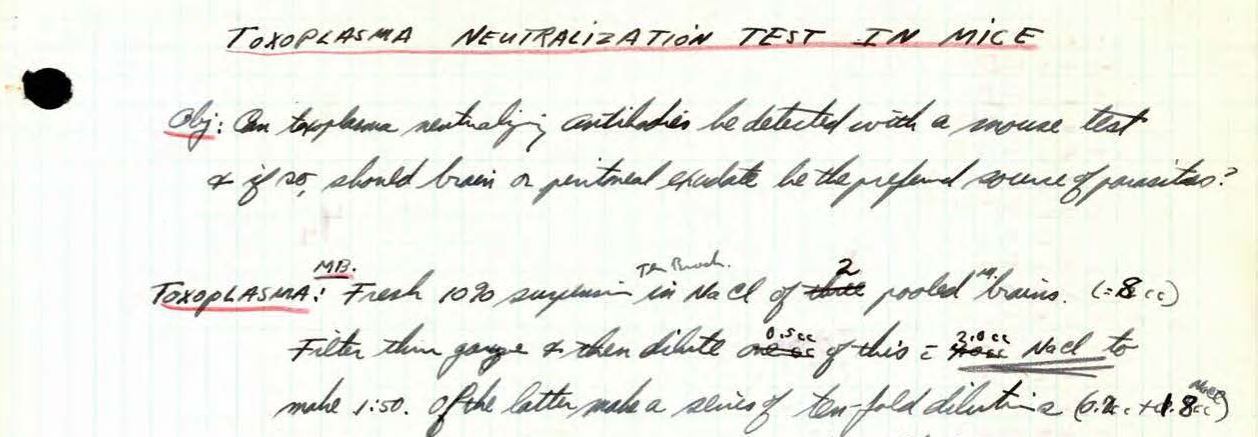 TOXOPLASMA NEUTRALIZATION TEST IN MICE
Obj: Can toxoplasma neutralizing antibodies be detected with a mouse test
& if so, should brain or peritoneal exudate be the preferred source of parasites?
MB.
TOXOPLASMA: Fresh 10% suspension in NaCl of 2 pooled M. brains. (=8 cc)
Filter thru gauze & then dilute 0.5cc of this c̄ 2.0cc NaCl to
make 1:50. Of the latter make a series of ten-fold dilutions (0.2cc + 1.8cc)